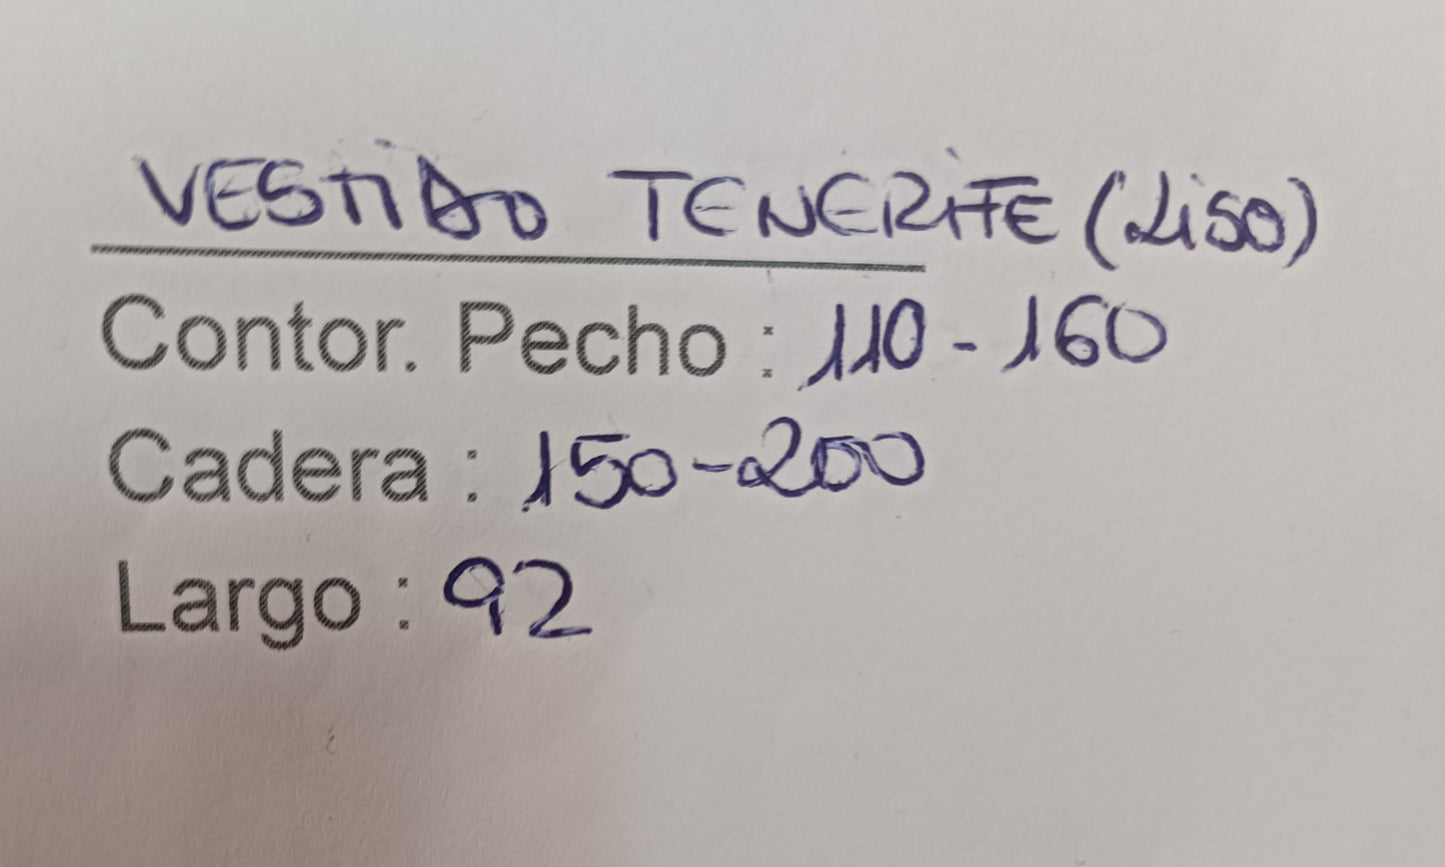 VESTIDO TENERIFE (Liso)
Contor. Pecho : 110 - 160
Cadera : 150-200
Largo : 92